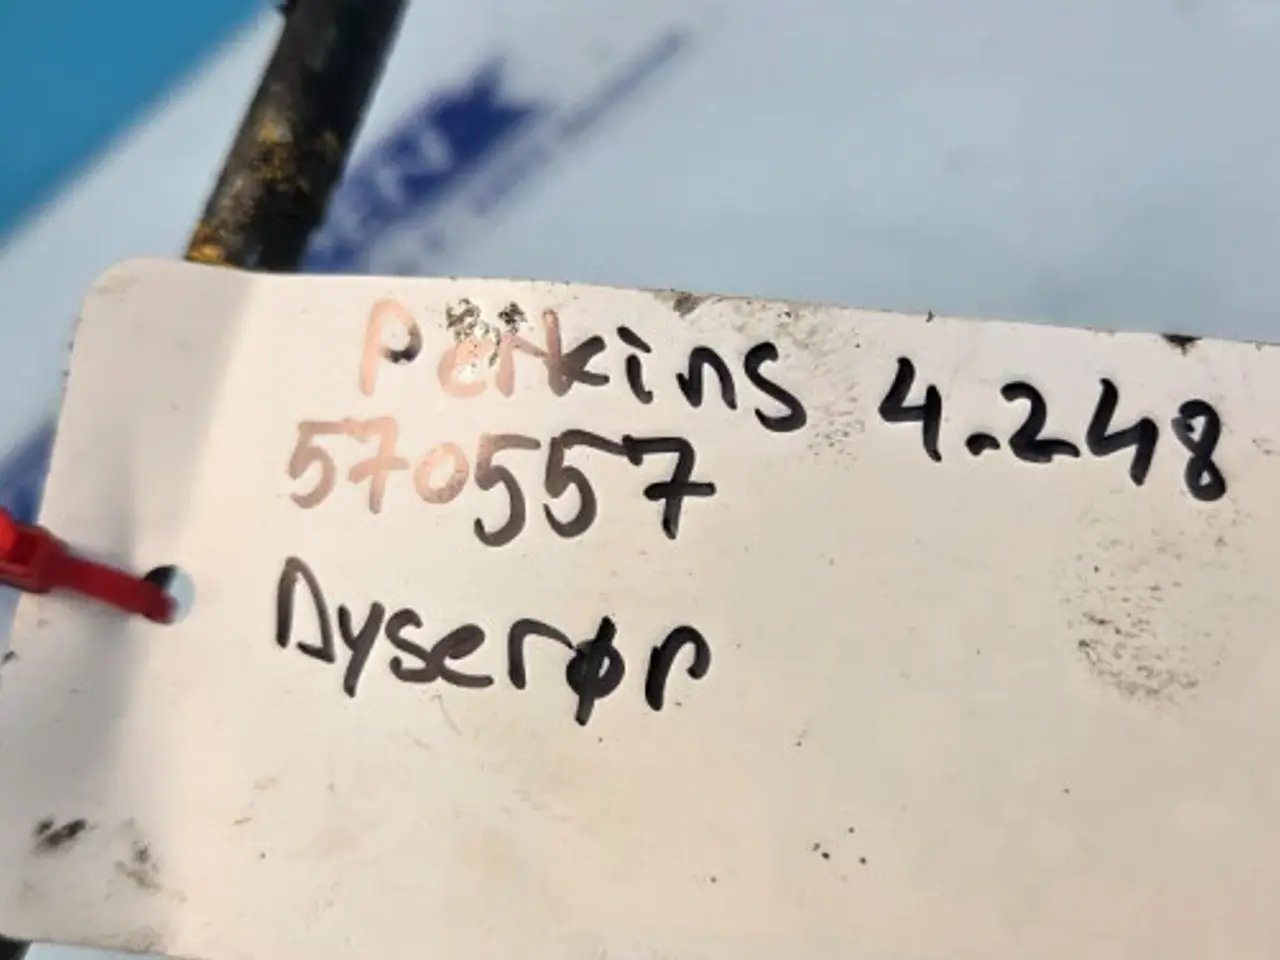 Perkins 4.248
570557
Dyserør